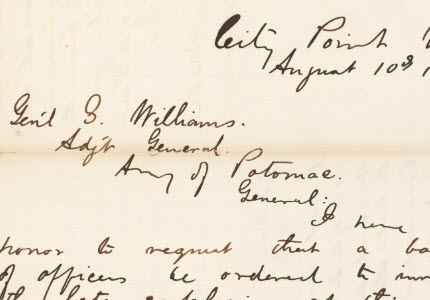 City Point
August 10th
Gen'l S. Williams.
Adj't General.
Army of Potomac.
General:
I have
honor to request that a
of officers be ordered to
the late explosion at